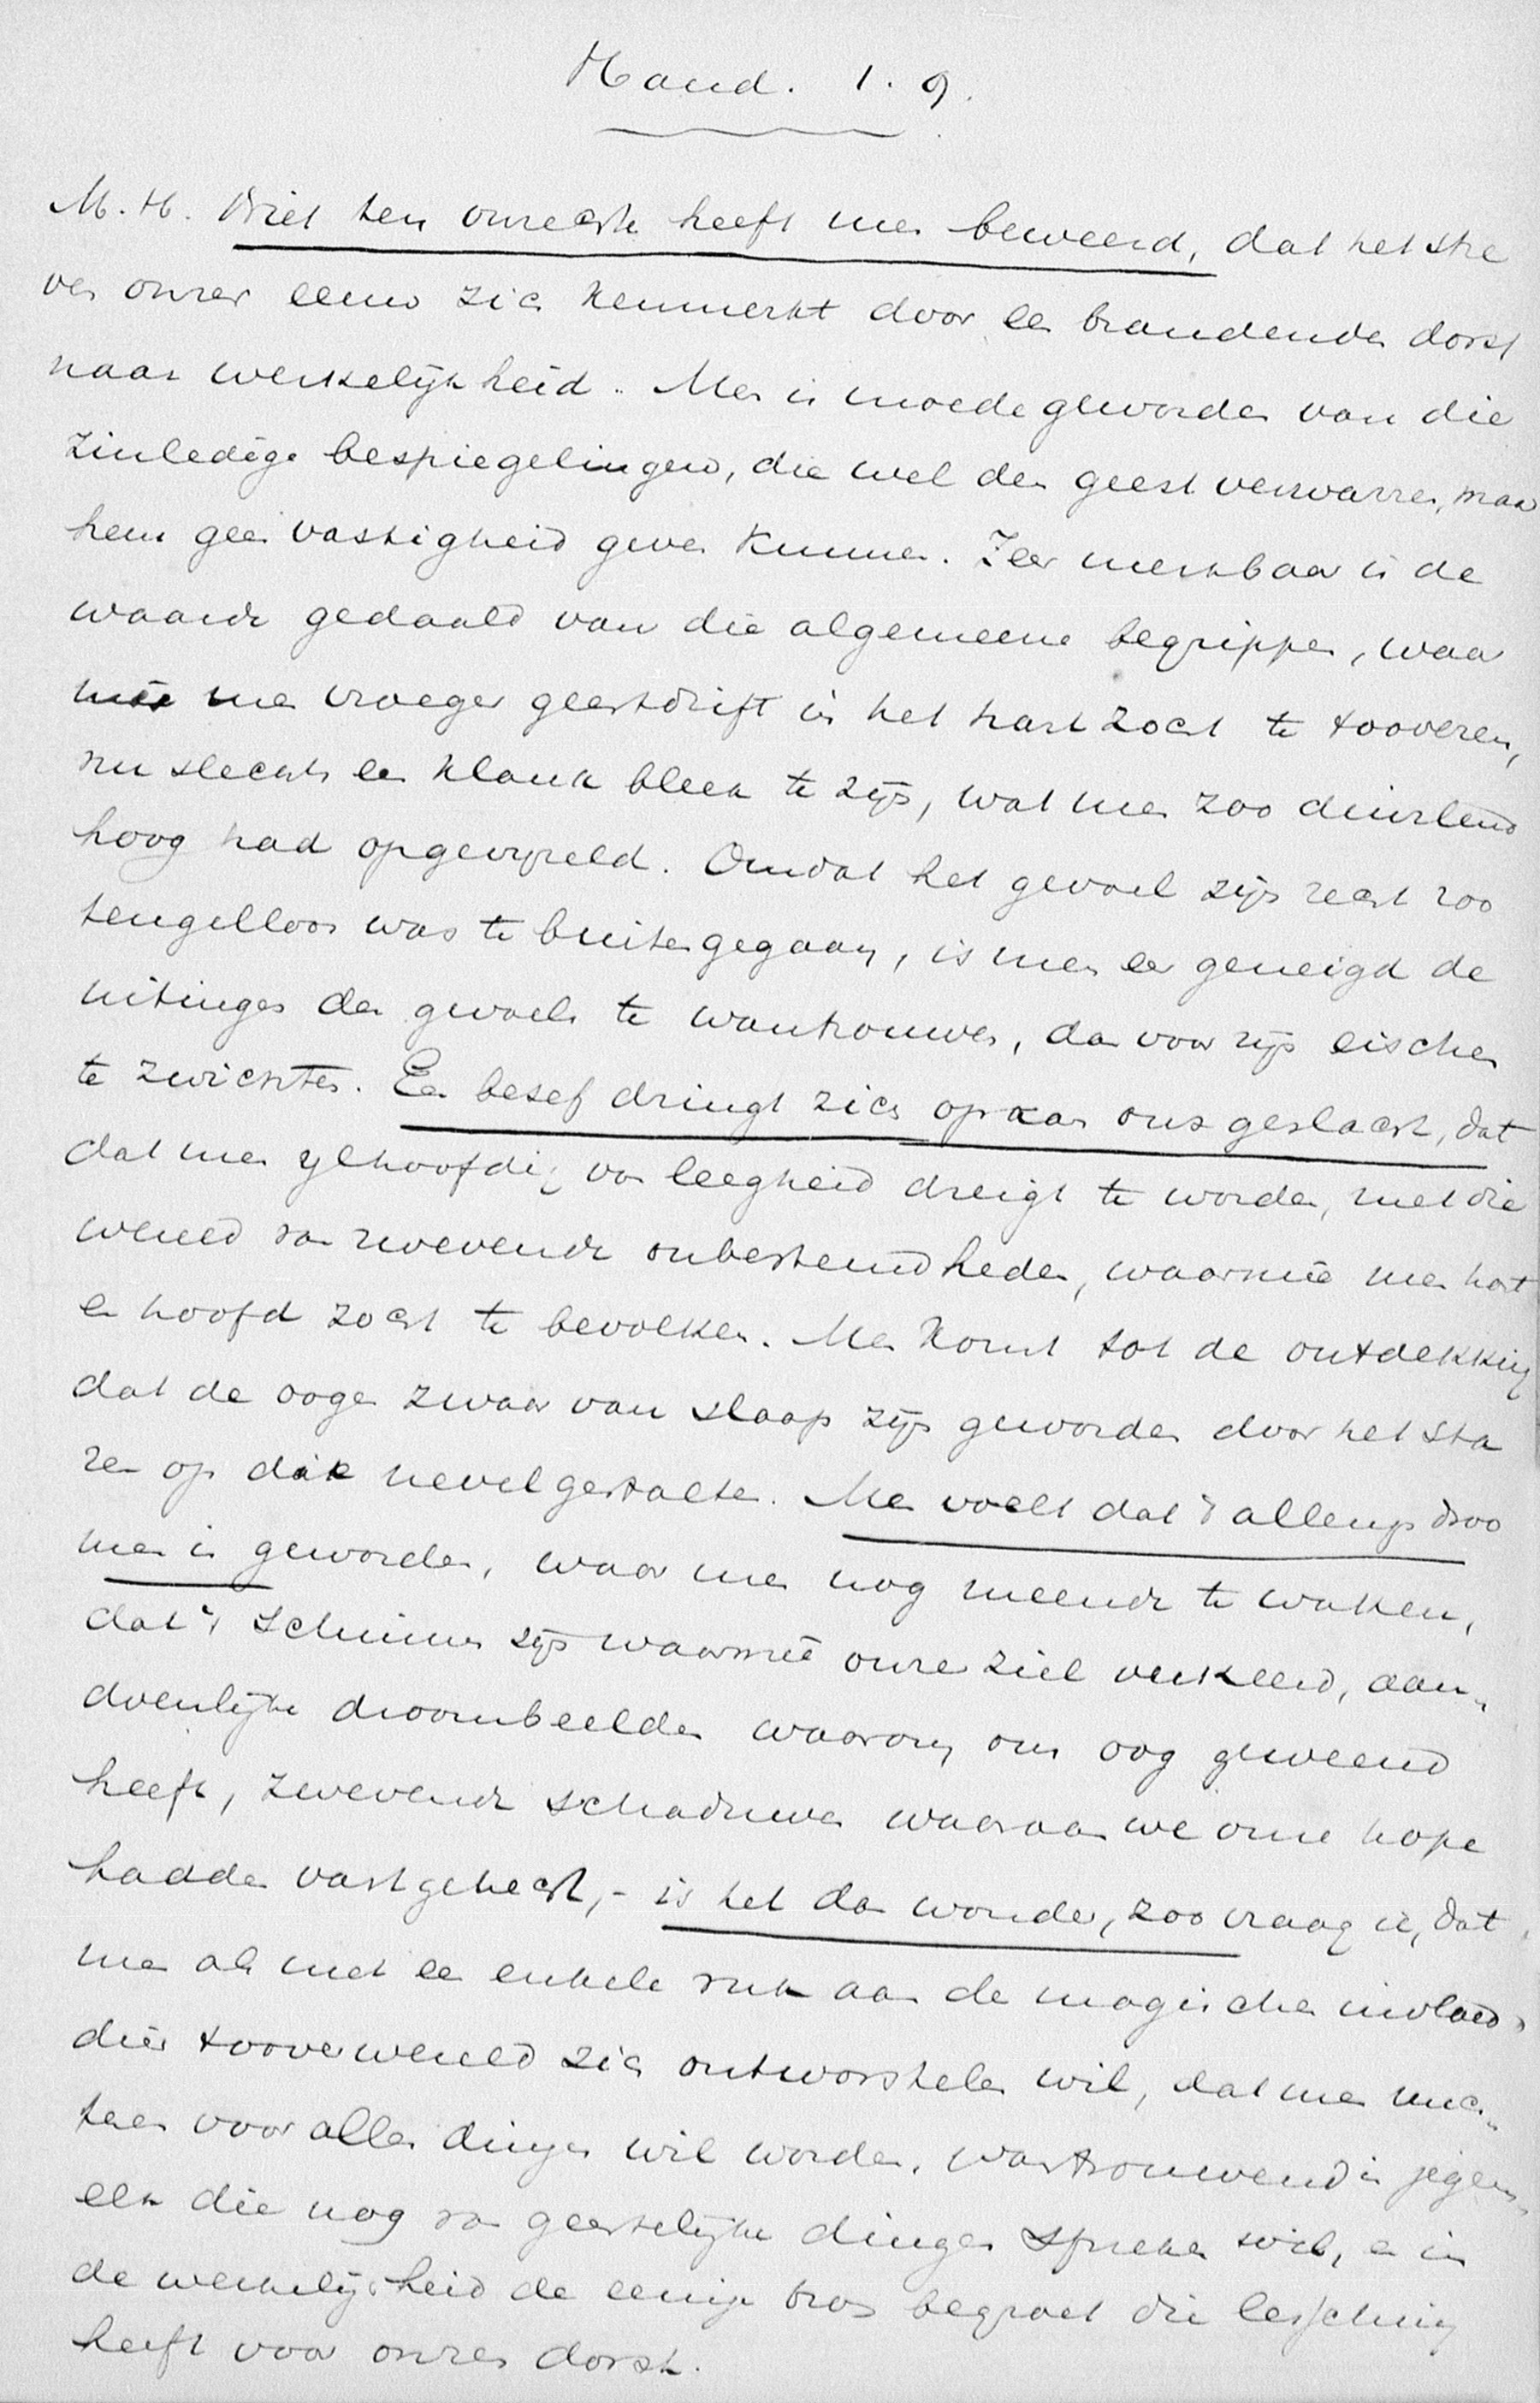 Hand. 1. 9.
M. H. Niet ten onrechte heeft men beweerd, dat het stre
ven onzer eeuw zich kenmerkt door een brandenden dorst
naar werkelijkheid. Men is moede geworden van die
zinledige bespiegelingen, die wel den geest verwarren, maar
hem geen vastigheid geven kunnen. Zeer merkbaar is de
waarde gedaald van die algemeene begrippen, waar
meê men vroeger geestdrift in het hart zocht te tooveren,
nu slechts een klank bleek te zijn, wat men zoo duizlend
hoog had opgevijzeld. Omdat het gevoel zijn recht zoo
teugelloos was te buiten gegaan, is men eer geneigd de
uitingen des gevoels te wantrouwen, dan voor zijn eischen
te zwichten. Een besef dringt zich op aan ons geslacht, dat
dat men ijlhoofdig van leegheid dreigt te worden, met die
wereld van zwevende onbestemdheden, waarmeê men hart
en hoofd zocht te bevolken. Men komt tot de ontdekking
dat de oogen zwaar van slaap zijn geworden door het sta
ren op die nevelgestalten. Men voelt dat 't allengs droo
men is geworden, waar men nog meende te waken,
dat 't schimmen zijn waarmeê onze ziel verkeerd, aan„
doenlijke droombeelden waarom ons oog geweend
heeft, zwevende schaduwen waaraan we onze hope
hadden vastgehecht, - is het dan wonder, zoo vraag ik, dat
men als met een enkele ruk aan de magischen invloed
dier tooverwereld zich ontworstelen wil, dat men nuch„
teren voor alle dingen wil worden, wantrouwend is jegens
elk die nog van geestelijke dingen spreken wil, en in
de werkelijkheid de eenige bron begroet die lessching
heeft voor onzen dorst.